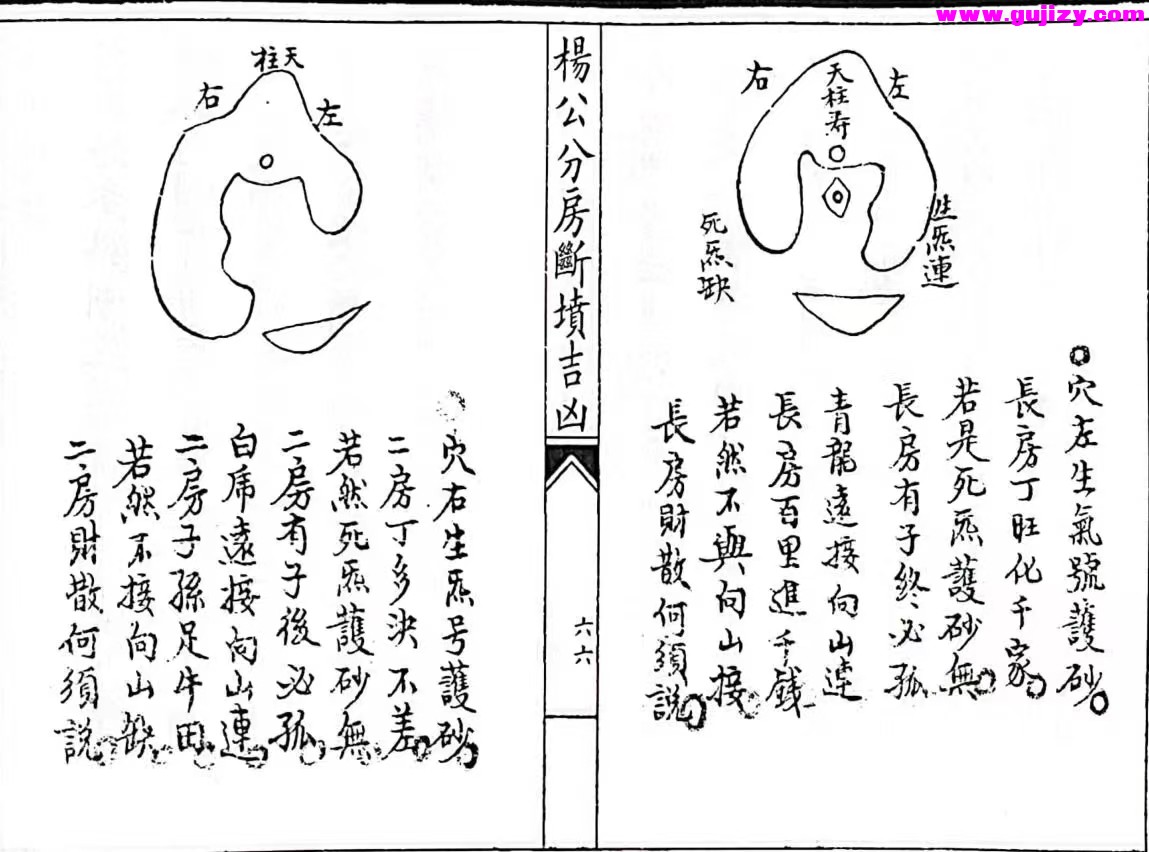 www.gujizy.com
右
天柱寿
左
死炁缺
生炁連
穴左生氣號護砂
長房丁旺化千家
若是死炁護砂無
長房有子終必孤
青龍遠接向山連
長房百里進千錢
若然不與向山接
長房財散何須説
楊公分房斷墳吉凶
六六
天柱
右
左
穴右生炁号護砂
二房丁多决不差
若然死炁護砂無
二房有子後必孤
白虎遠接向山連
二房子孫足牛田
若然不接向山缺
二房財散何須説